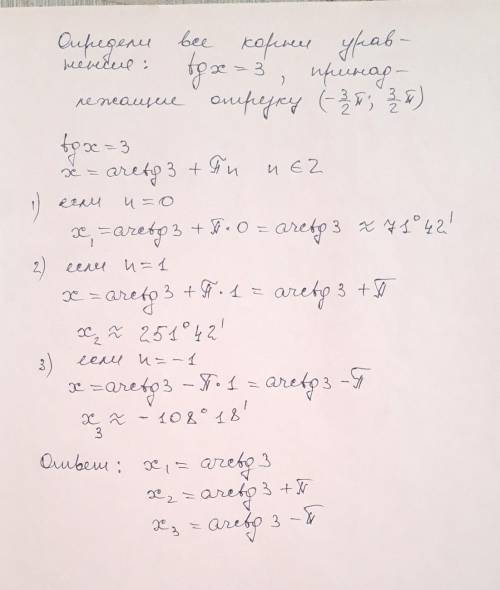 Определи все корни урав-
нение: tgx = 3, принад-
лежащие отрезку (-3/2π; 3/2π)
tgx = 3
x = arctg 3 + πn n ∈ Z
1) если n = 0
x₁ = arctg 3 + π·0 = arctg 3 ≈ 71°42'
2) если n = 1
x = arctg 3 + π·1 = arctg 3 + π
x₂ ≈ 251°42'
3) если n = -1
x = arctg 3 - π·1 = arctg 3 - π
x₃ ≈ -108°18'
Ответ: x₁ = arctg 3
x₂ = arctg 3 + π
x₃ = arctg 3 - π